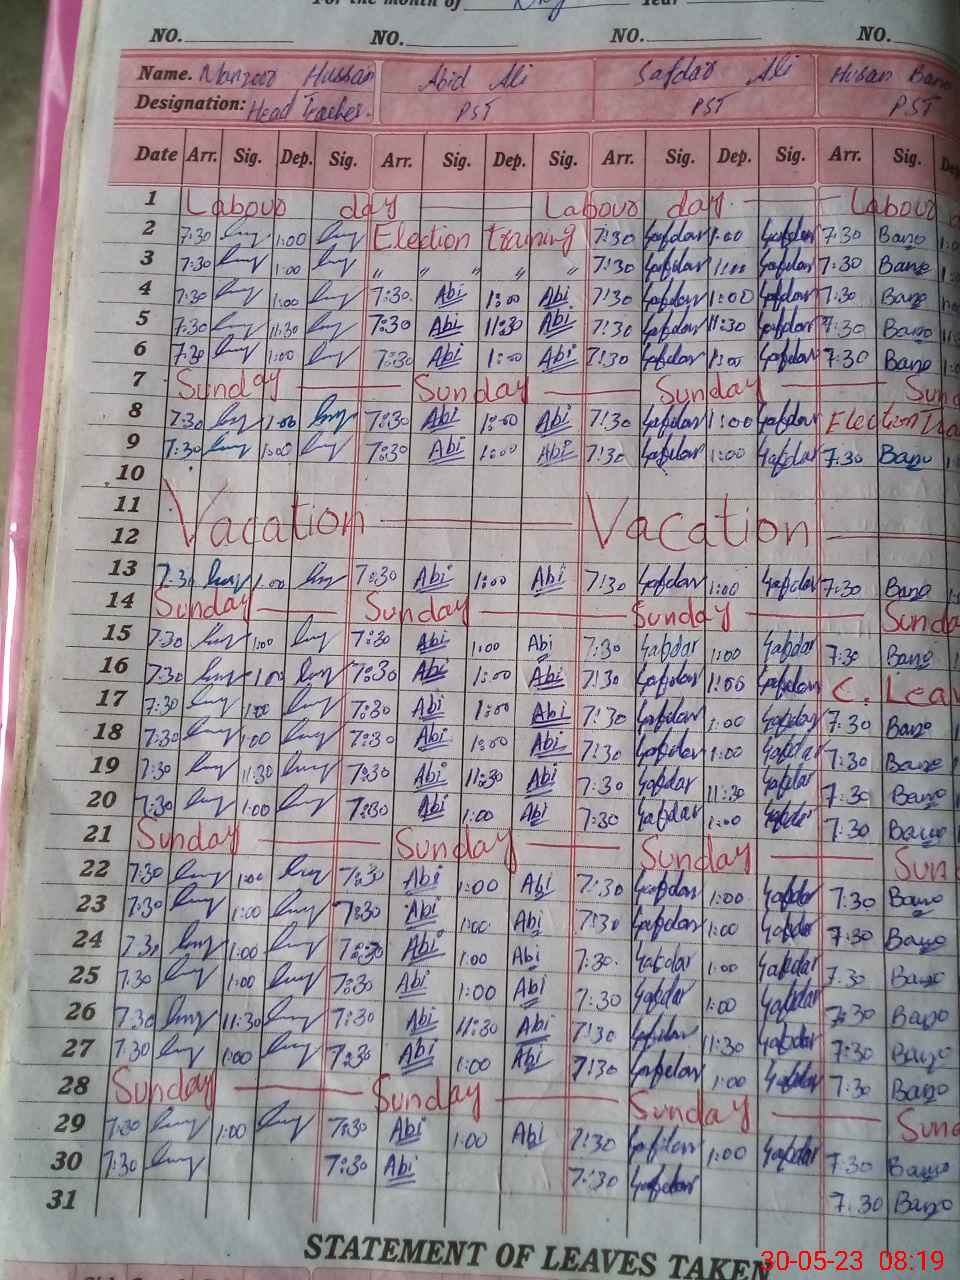 For the month of Year
NO. NO. NO. NO.
Name. Manzoor Hussain Abid Ali Safdar Ali Husan Bano
Designation: Head Teacher. PST PST PST
Date Arr. Sig. Dep. Sig. Arr. Sig. Dep. Sig. Arr. Sig. Dep. Sig. Arr. Sig.
1 Labour day Labour day Labour
2 7:30 1:00 Election training 7:30 Safdar 1:00 Safdar 7:30 Bano
3 7:30 1:00 " " " " " 7:30 Safdar 1:00 Safdar 7:30 Bano
4 7:30 1:00 7:30 Abi 1:00 Abi 7:30 Safdar 1:00 Safdar 7:30 Bano
5 7:30 11:30 7:30 Abi 11:30 Abi 7:30 Safdar 11:30 Safdar 7:30 Bano
6 7:30 1:00 7:30 Abi 1:00 Abi 7:30 Safdar 1:00 Safdar 7:30 Bano
7 Sunday Sunday Sunday
8 7:30 1:00 7:30 Abi 1:00 Abi 7:30 Safdar 1:00 Safdar Election
9 7:30 1:00 7:30 Abi 1:00 Abi 7:30 Safdar 1:00 Safdar 7:30 Bano
10
11 Vacation Vacation
12
13 7:30 1:00 7:30 Abi 1:00 Abi 7:30 Safdar 1:00 Safdar 7:30 Bano
14 Sunday Sunday Sunday
15 7:30 1:00 7:30 Abi 1:00 Abi 7:30 Safdar 1:00 Safdar 7:30 Bano
16 7:30 1:00 7:30 Abi 1:00 Abi 7:30 Safdar 1:00 Safdar C. Leav
17 7:30 1:00 7:30 Abi 1:00 Abi 7:30 Safdar 1:00 Safdar 7:30 Bano
18 7:30 1:00 7:30 Abi 1:00 Abi 7:30 Safdar 1:00 Safdar 7:30 Bano
19 7:30 11:30 7:30 Abi 11:30 Abi 7:30 Safdar 11:30 Safdar 7:30 Bano
20 7:30 1:00 7:30 Abi 1:00 Abi 7:30 Safdar 1:00 Safdar 7:30 Bano
21 Sunday Sunday Sunday
22 7:30 1:00 7:30 Abi 1:00 Abi 7:30 Safdar 1:00 Safdar 7:30 Bano
23 7:30 1:00 7:30 Abi 1:00 Abi 7:30 Safdar 1:00 Safdar 7:30 Bano
24 7:30 1:00 7:30 Abi 1:00 Abi 7:30 Safdar 1:00 Safdar 7:30 Bano
25 7:30 1:00 7:30 Abi 1:00 Abi 7:30 Safdar 1:00 Safdar 7:30 Bano
26 7:30 11:30 7:30 Abi 11:30 Abi 7:30 Safdar 11:30 Safdar 7:30 Bano
27 7:30 1:00 7:30 Abi 1:00 Abi 7:30 Safdar 1:00 Safdar 7:30 Bano
28 Sunday Sunday Sunday
29 7:30 1:00 7:30 Abi 1:00 Abi 7:30 Safdar 1:00 Safdar 7:30 Bano
30 7:30 7:30 Abi 7:30 Safdar 7:30 Bano
31
STATEMENT OF LEAVES TAKEN
30-05-23 08:19